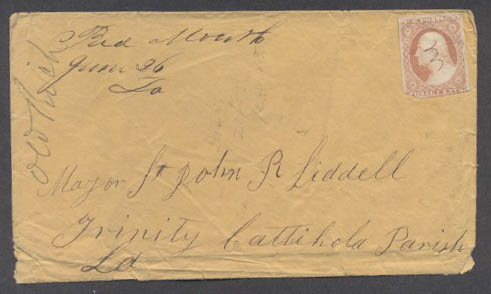 Red Mouth
June 26
La
3
THREE CENTS
Major St John R Liddell
Trinity Cattihola Parish
La